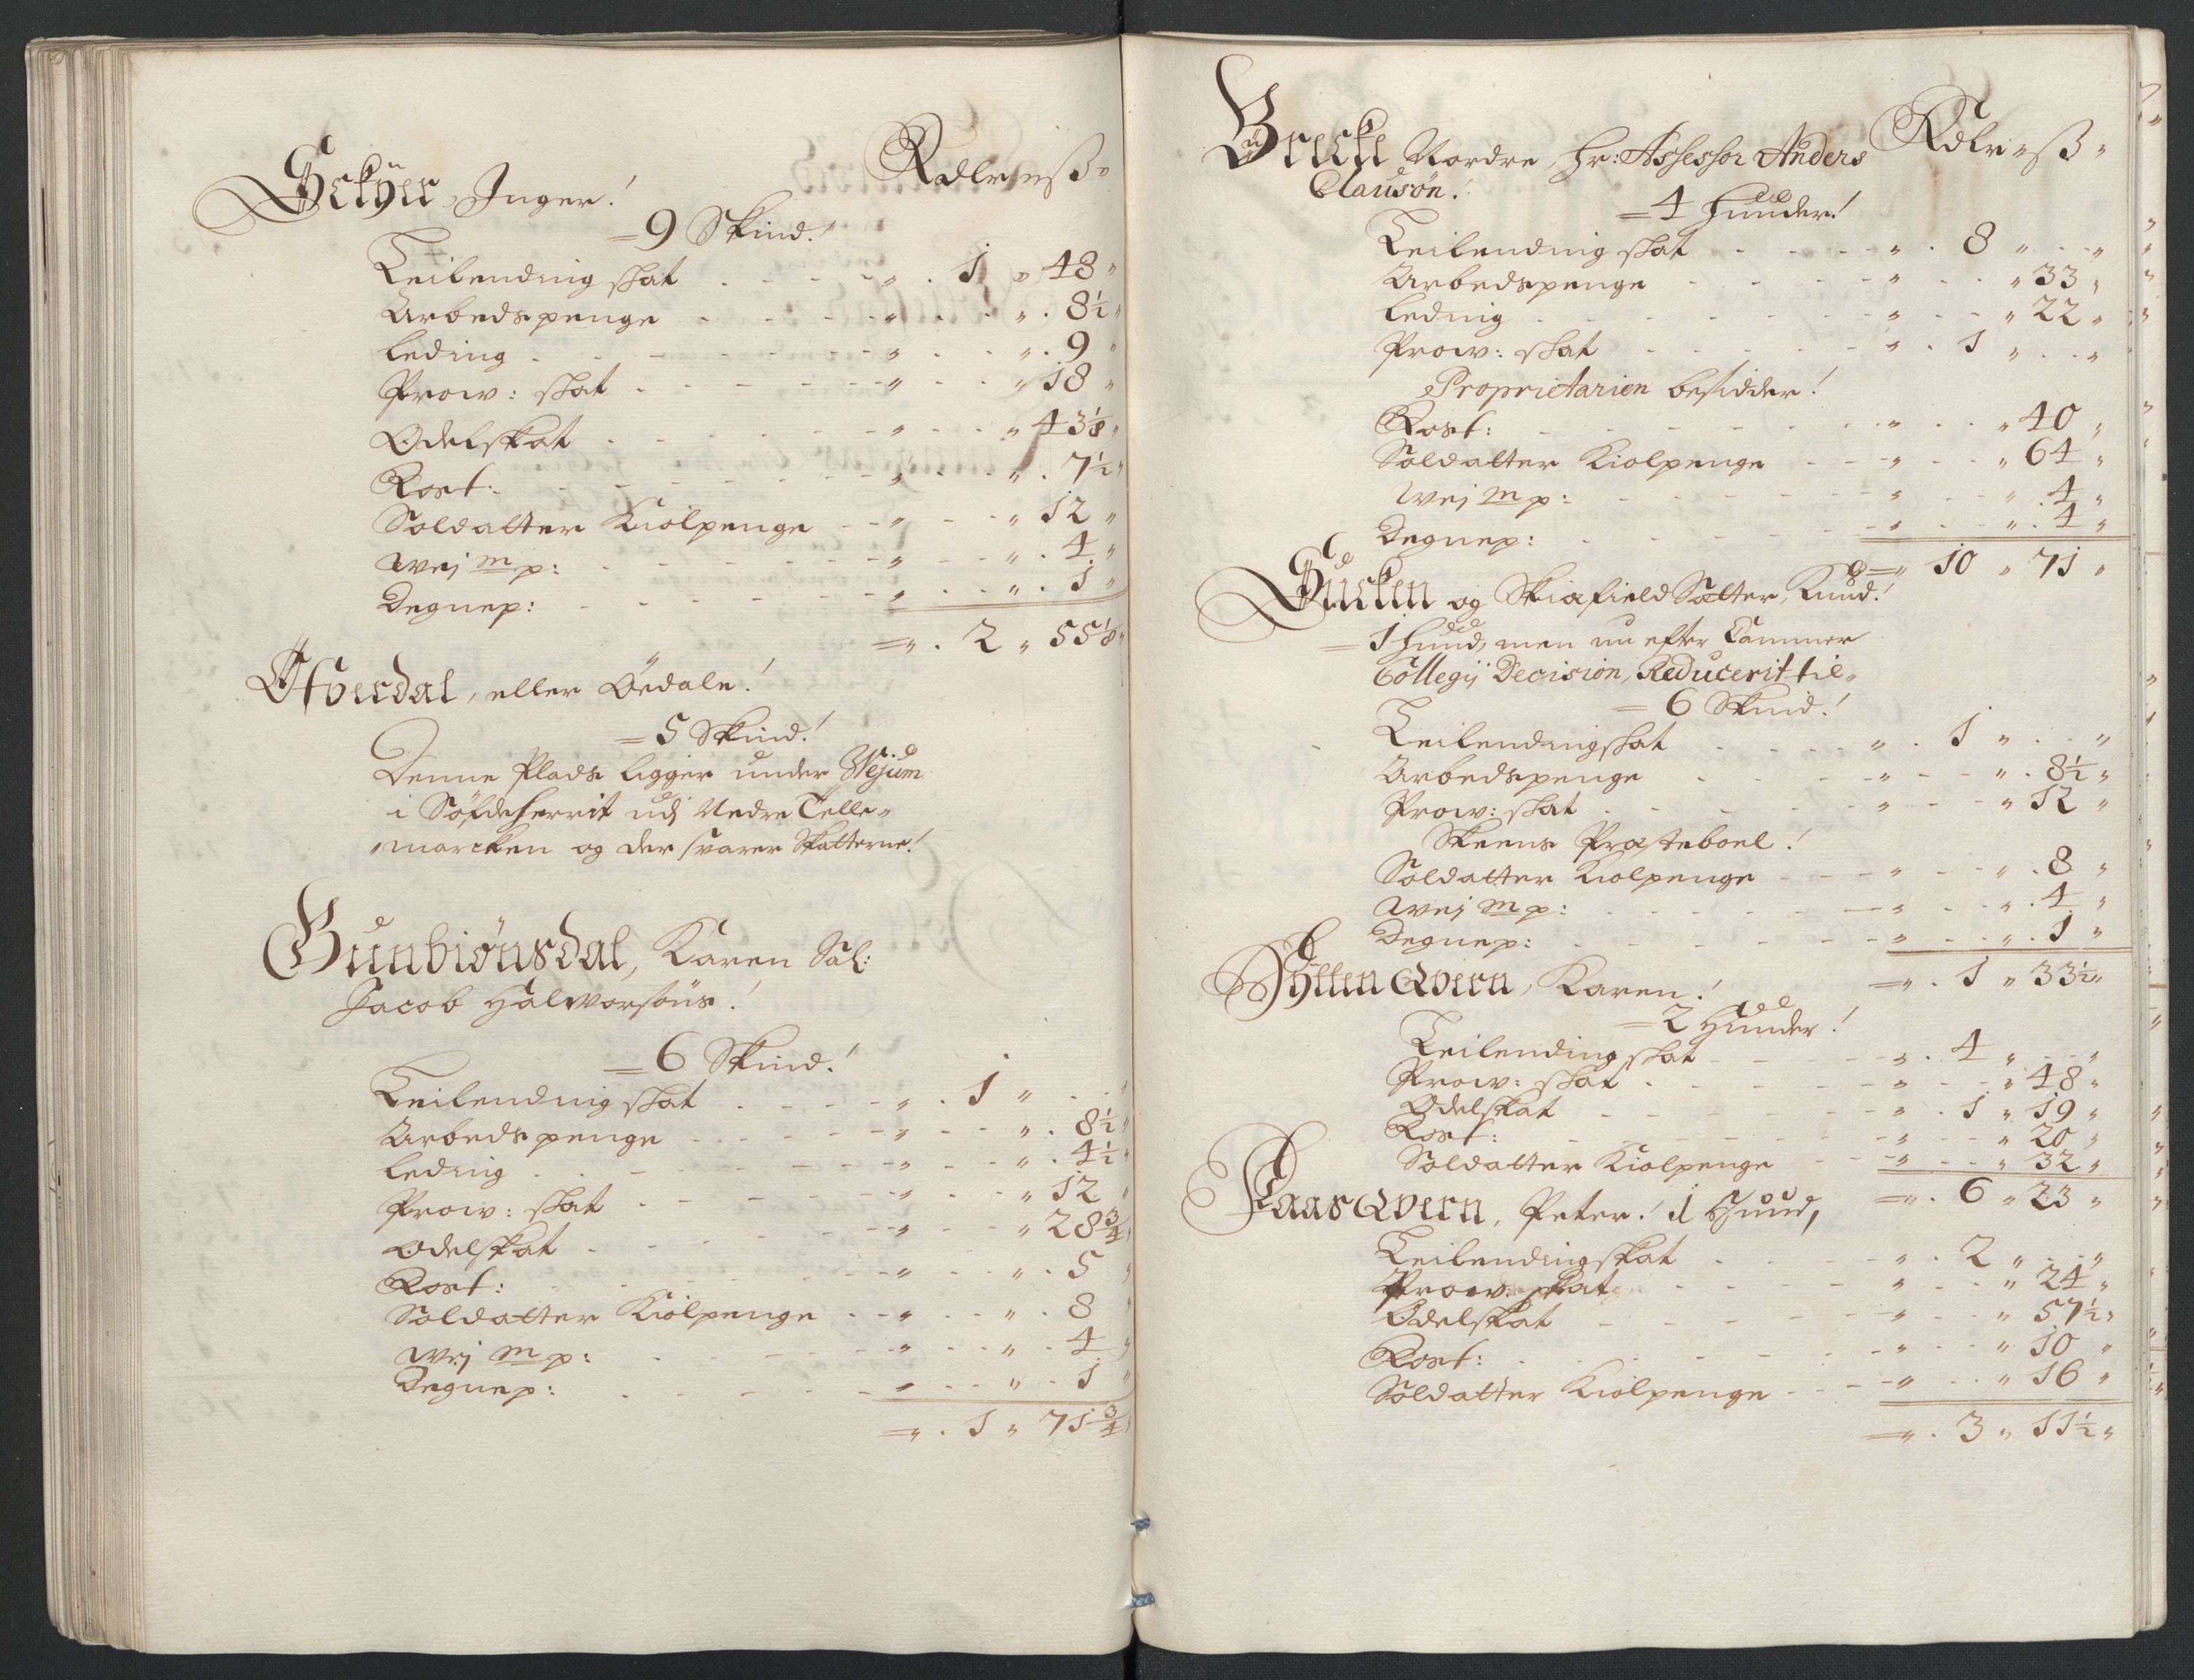 Rdlr " ß "
Eckÿer, Inger!
= 9 Skind!
Leilending skat " . 1 " 48 "
Arbeds penge " . . " . 8½ "
Leding " . . " . 9 "
Prow: skat " . . " 18 "
Odelskat " . . " 43⅛ "
Rost: " . . " . 7½ "
Soldatter Kiolpenge " . . " 12 "
Wej m p: " . . " . 4 "
Degnep: " . . " . 1 "
= " . 2 " 55⅛ "
Ofverdal, eller Öedale!
= 5 Skind!
Denne Plads ligger under Wejum
i Söfdeherrit udj Nedre Telle-
"marcken og der svarer Skatterne!
Gunbiönsdal, Karen Sal:
Jacob Halworsöns!
= 6 Skind!
Leilending skat " . 1 " . . "
Arbeds penge " . . " . 8½ "
Leding " . . " . 4½ "
Prow: skat " . . " 12 "
Odelskat " . . " 28¾ "
Rost: " . . " . 5 "
Soldatter Kiolpenge " . . " . 8 "
Wej m p: " . . " . 4 "
Degnep: " . . " . 1 "
= " . 1 " 71¾ "
Rdlr " ß "
Brecke Nordre, Hr: Assessor Anders
Clausøn!
= 4 Huuder!
Leilending skat " . 8 " . . "
Arbedspenge " . . " 33 "
Leding " . . " 22 "
Prow: skat " . 1 " . . "
Proprietarien besidder!
Rost: " . . " 40 "
Soldatter Kiolpenge " . . " 64 "
Wej m p: " . . " . 4 "
Degnep: " . . " . 4 "
= " 10 " 71 "
Bucken og Skiæfield Sætter, Knud!
= 1 Huud, men nu efter Cammer
Collegij Decision, Reducerit til "
= 6 Skind!
Leilendingskat " . 1 " . . "
Arbedspenge " . . " . 8½ "
Prow: skat " . . " 12 "
Skeens Præsteboel!
Soldatter Kiolpenge " . . " . 8 "
Wej m p: " . . " . 4 "
Degnep: " . . " . 1 "
= " . 1 " 33½ "
Hÿtten Qvern, Karen!
= 2 Huuder!
Leilending skat " . 4 " . . "
Prow: skat " . . " 48 "
Odelskat " . 1 " 19 "
Rost: " . . " 20 "
Soldatter Kiolpenge " . . " 32 "
= " . 6 " 23 "
Faas Qvern, Peter! 1 Huud,
Leilendingskat " . 2 " . . "
Prow: skat " . . " 24 "
Odelskat " . . " 57½ "
Rost: " . . " 10 "
Soldatter Kiolpenge " . . " 16 "
= " . 3 " 11½ "